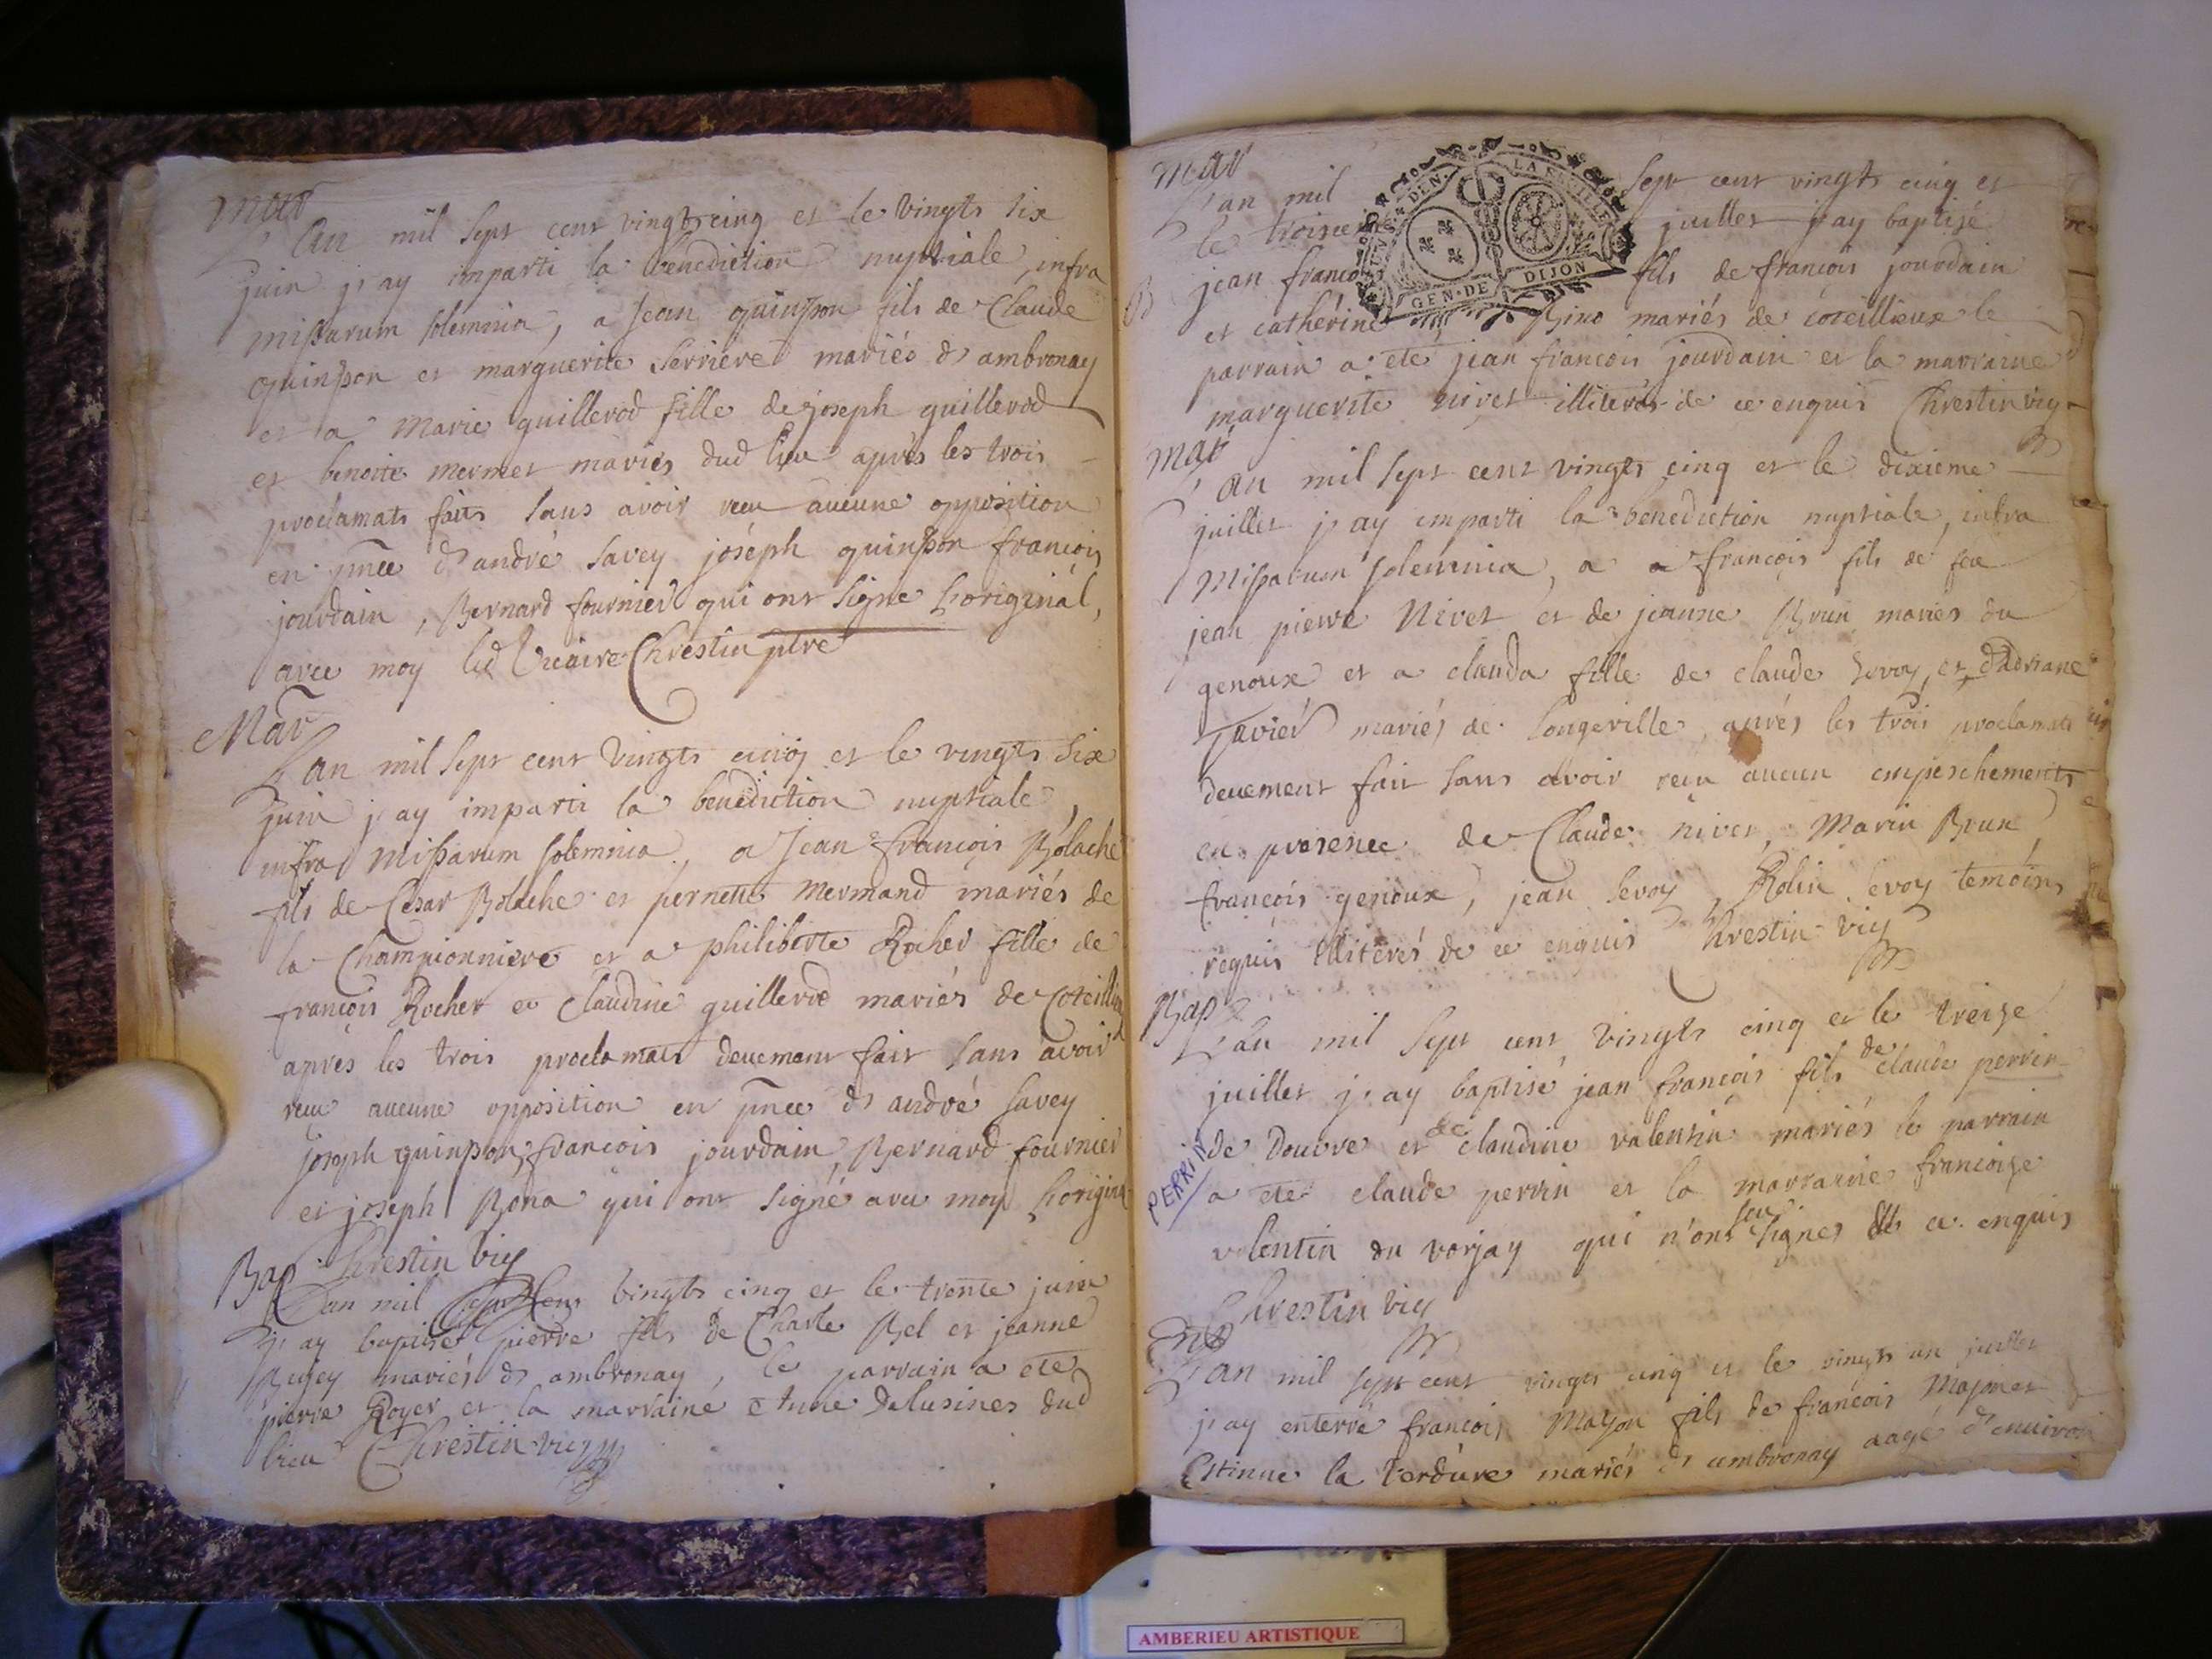 Mar
L'an mil sept cent vingts cinq et le vingts six
juin j'ay imparti la benediction nuptiale, infra
missarum solemnia, a Jean quinson fils de Claude
quinson et marguerite Serriere mariés d'ambronay
et a Marie guillerod fille de joseph guillerod
et benoite mermet mariés dud lieu après les trois
proclamats faits sans avoir reçu aucune opposition
en pnce d'andré savey joseph quinson françois
jourdain, Bernard fournier qui ont signe l'original,
avec moy led Vicaire Chrestin ptre
Mar
L'an mil sept cent vingts cinq et le vingts six
juin j'ay imparti la benediction nuptiale,
infra Missarum solemnia, a Jean françois Bolache
fils de Cesar Bolache et pernette Mermand mariés de
la Championniere et a philiberte Rocher fille de
françois Rocher et Claudine guillerod mariés de Coteillieu
apres les trois proclamats deuement fait sans avoir
reçu aucune opposition en pnce d'andré savey
joseph quinson, françois jourdain, Bernard fournier
et joseph Bona qui ont signé avec moy l'origina
Chrestin vic
Bap
L'an mil sept cent vingts cinq et le trente juin
j'ay baptisé pierre fils de Charle Bel et jeanne
Bugey mariés d'ambronay, le parrain a eté
pierre Royer et la marraine etune Delusines dud
lieu Chrestin vic
Mar
L'an mil sept cent vingts cinq et
le troisieme juillet j'ay baptisé
B jean françois fils de françois jourdain
et catherine Bino mariés de coteillieux le
parrain a eté jean françois jourdain et la marraine
marguerite nivet illiterés de ce enquis Chrestin vic
Mar
L'an mil sept cent vingts cinq et le dixieme
juillet j'ay imparti la benediction nuptiale, infra
Missarum solemnia, a a françois fils de feu
jean pierre Nivet et de jeanne Brun mariés du
genoux et a clauda fille de claude levoy, et d'adriane
Javier mariés de Longeville, après les trois proclamats
deuement fait sans avoir reçu aucun empeschements
en presence de Claude nivet, Marin Brun,
françois genoux, jean levoy, Rolin levoy temoins
requis illiterés de ce enquis Chrestin vic
Bap
L'an mil sept cent vingts cinq et le treize
juillet j'ay baptisé jean françois fils de claude perrin
de Douvre et de claudine valentin mariés le parrain
PERRIN
a eté claude perrin et la marraine françoise
valentin du vorjay qui n'ont sçu signer de ce enquis
Chrestin vic
Ent
L'an mil sept cent vingts cinq et le vingts un juillet
j'ay enterré françois Mazon fils de françois Mazon et
Estinne la Verdure mariés d'ambronay aagé d'environ
GEN·DE DIJON
AMBERIEU ARTISTIQUE